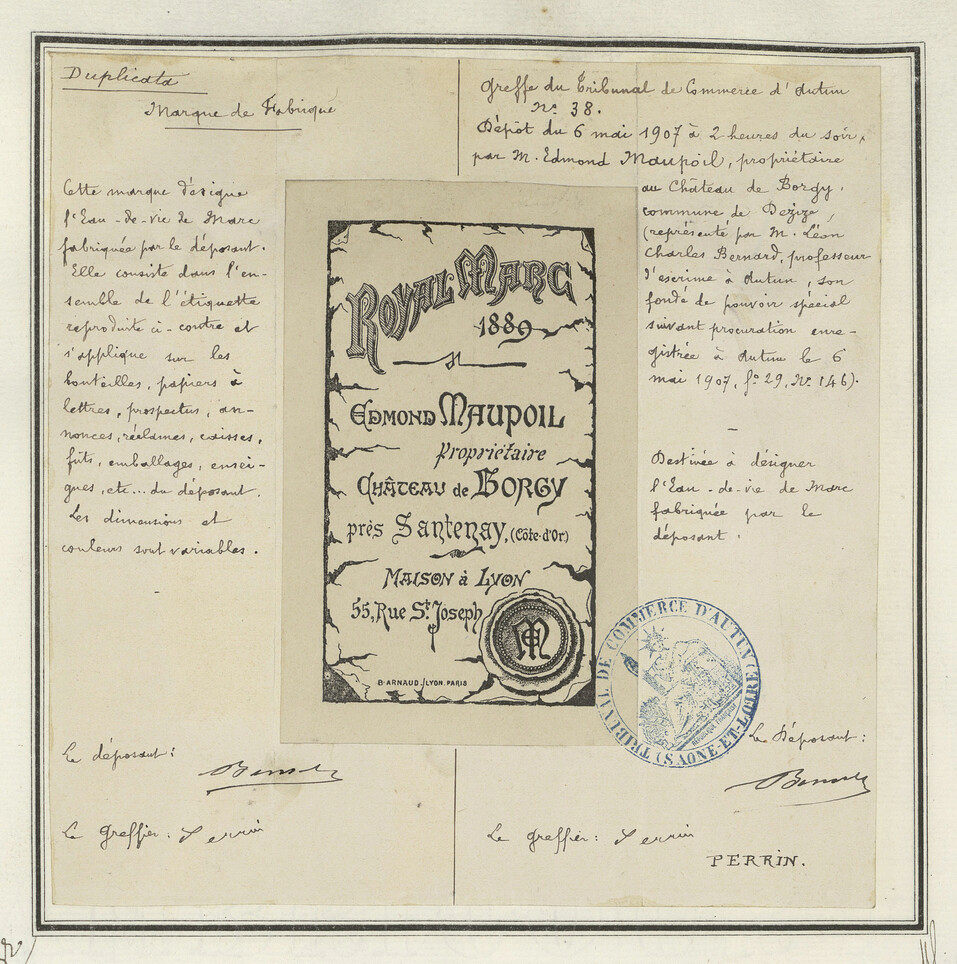 Duplicata
Marque de Fabrique
Cette marque désigne
l'Eau-de-vie de Marc
fabriquée par le déposant.
Elle consiste dans l'en-
semble de l'étiquette
reproduite ci-contre et
s'applique sur les
bouteilles, papiers à
lettres, prospectus, an-
nonces, réclames, caisses,
fûts, emballages, ensei-
gnes, etc... du déposant.
Les dimensions et
couleurs sont variables.
Le déposant:
Le greffier: Perrin
Greffe du Tribunal de Commerce d'Autun
No 38.
Dépôt du 6 mai 1907 à 2 heures du soir,
par M. Edmond Maupoil, propriétaire
au Château de Borgy,
commune de Dezize,
(représenté par M. Léon
Charles Bernard, professeur
d'escrime à Autun, son
fondé de pouvoir spécial
suivant procuration enre-
gistrée à Autun le 6
mai 1907, fo 29, No 146).
Destinée à désigner
l'Eau-de-vie de Marc
fabriquée par le
déposant.
ROYAL MARC
1889
EDMOND MAUPOIL
Propriétaire
CHÂTEAU de BORGY
près Santenay, (Côte-d'Or)
MAISON à LYON
55, Rue St. Joseph
M
B. ARNAUD. LYON. PARIS
TRIBUNAL DE COMMERCE D'AUTUN
(SAONE-ET-LOIRE)
RÉPUBLIQUE FRANÇAISE
Le Déposant:
Le greffier: Perrin
PERRIN.